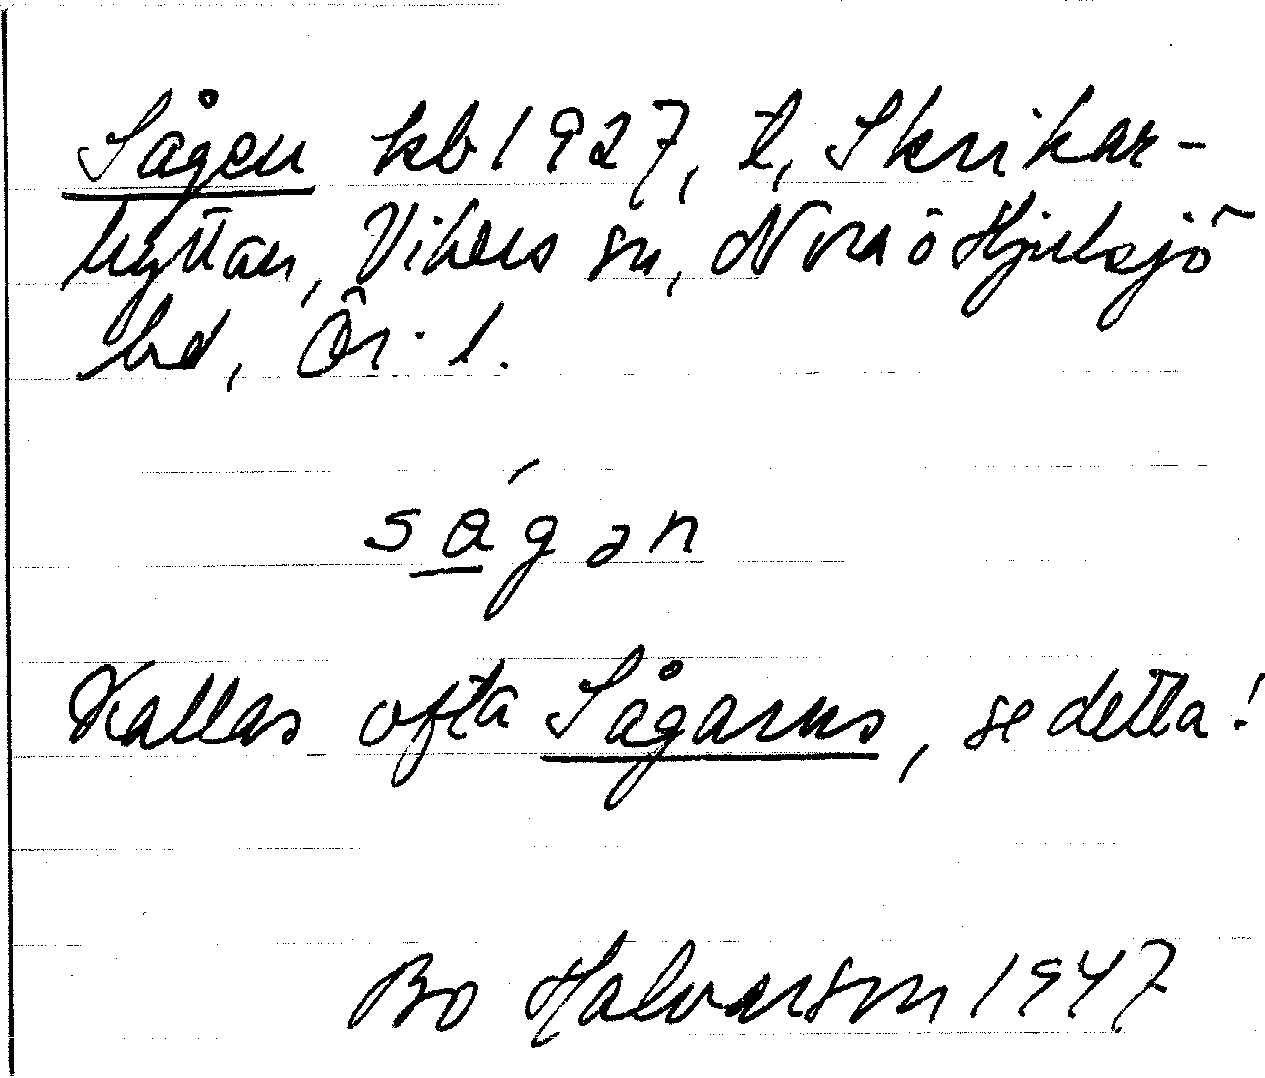 Sågen kb 1927, t, Skrikar-
hyttan, Vikers sn, Nora o Hjulsjö
bd, Ör. l.
ságən
Kallas ofta Sågarns, se detta!
Bo Halvarson 1947